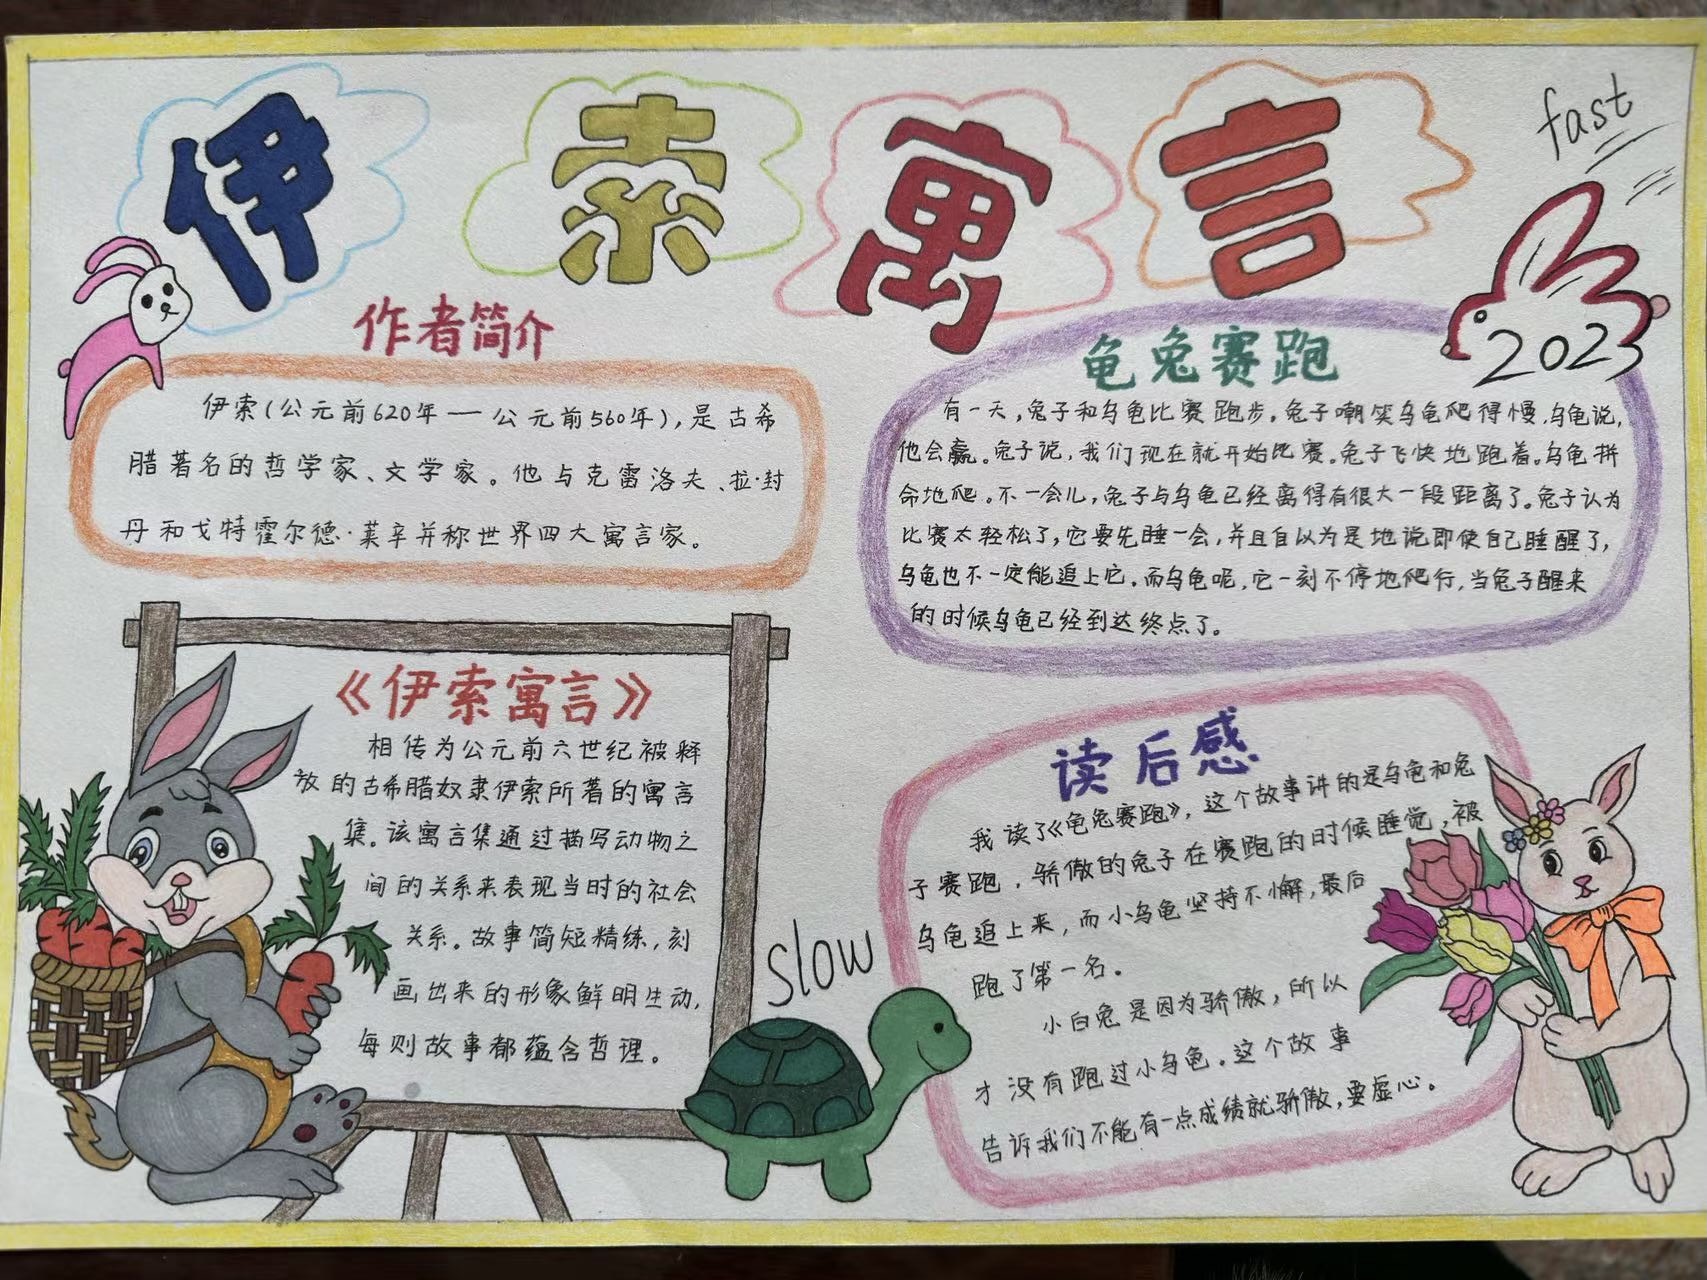 伊索寓言
fast
2023
作者简介
伊索(公元前620年一公元前560年),是古希
腊著名的哲学家、文学家。他与克雷洛夫、拉·封
丹和戈特霍尔德·莱辛并称世界四大寓言家。
龟兔赛跑
有一天,兔子和乌龟比赛跑步,兔子嘲笑乌龟爬得慢,乌龟说,
他会赢。兔子说,我们现在就开始比赛。兔子飞快地跑着。乌龟拼
命地爬。不一会儿,兔子与乌龟已经离得有很大一段距离了。兔子认为
比赛太轻松了,它要先睡一会,并且自以为是地说即使自己睡醒了,
乌龟也不一定能追上它。而乌龟呢,它一刻不停地爬行,当兔子醒来
的时候乌龟已经到达终点了。
《伊索寓言》
相传为公元前六世纪被释
放的古希腊奴隶伊索所著的寓言
集。该寓言集通过描写动物之
间的关系来表现当时的社会
关系。故事简短精练,刻
画出来的形象鲜明生动,
每则故事都蕴含哲理。
slow
读后感
我读了《龟兔赛跑》,这个故事讲的是乌龟和兔
子赛跑,骄傲的兔子在赛跑的时候睡觉,被
乌龟追上来,而小乌龟坚持不懈,最后
跑了第一名。
小白兔是因为骄傲,所以
才没有跑过小乌龟。这个故事
告诉我们不能有一点成绩就骄傲,要虚心。